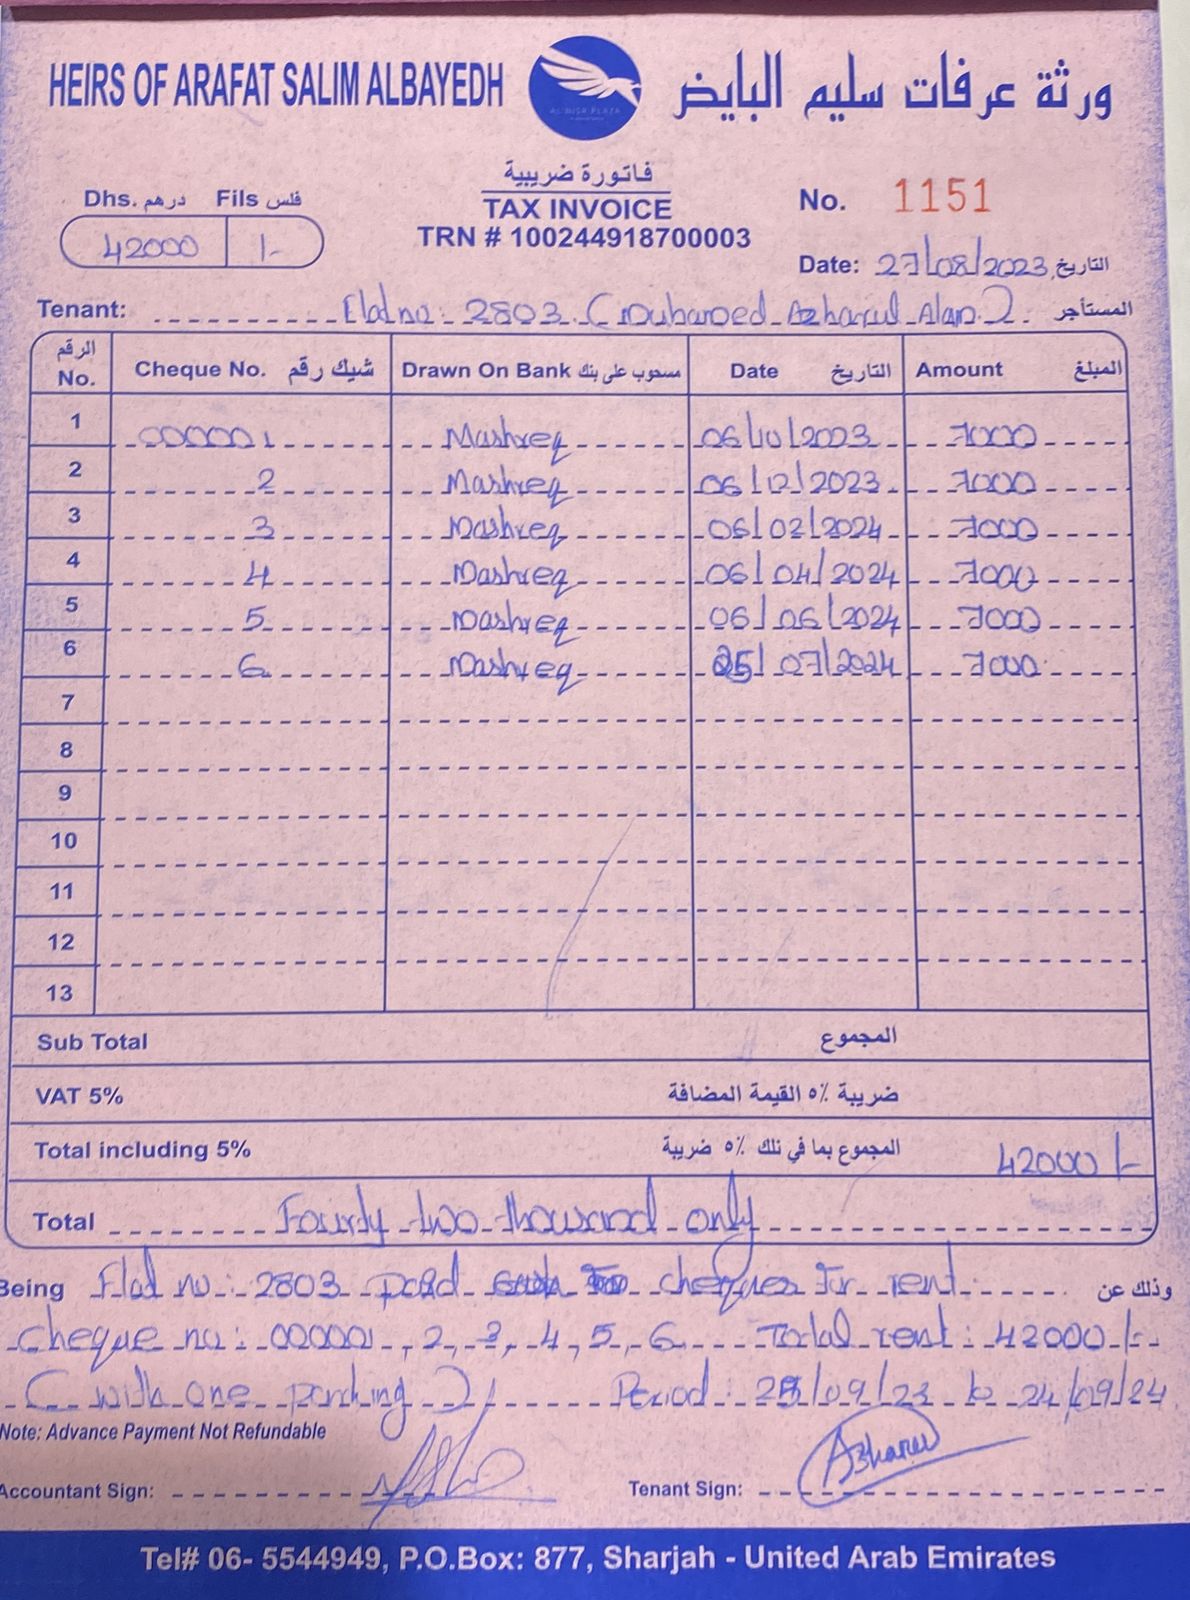 HEIRS OF ARAFAT SALIM ALBAYEDH ورثة عرفات سليم البايض
فاتورة ضريبية
TAX INVOICE
TRN # 100244918700003
Dhs. درهم Fils فلس
42000 /-
No. 1151
Date: 27/08/2023 التاريخ
Tenant: Flat no: 2803 (Mohamed Azharul Alam) المستأجر
الرقم No. Cheque No. شيك رقم Drawn On Bank مسحوب على بنك Date التاريخ Amount المبلغ
1 000001 Mashreq 06/10/2023 7000
2 2 Mashreq 06/12/2023 7000
3 3 Mashreq 06/02/2024 7000
4 4 Mashreq 06/04/2024 7000
5 5 Mashreq 06/06/2024 7000
6 6 Mashreq 25/07/2024 7000
7
8
9
10
11
12
13
Sub Total المجموع
VAT 5% ضريبة ٥٪ القيمة المضافة
Total including 5% المجموع بما في تلك ٥٪ ضريبة 42000/-
Total Fourty two thousand only
Being Flat no: 2803 paid cheques for rent وذلك عن
cheque no: 000001, 2, 3, 4, 5, 6 Total rent: 42000/-
(with one parking) Period: 25/09/23 to 24/09/24
Note: Advance Payment Not Refundable
Accountant Sign: Tenant Sign: Azharul
Tel# 06- 5544949, P.O.Box: 877, Sharjah - United Arab Emirates